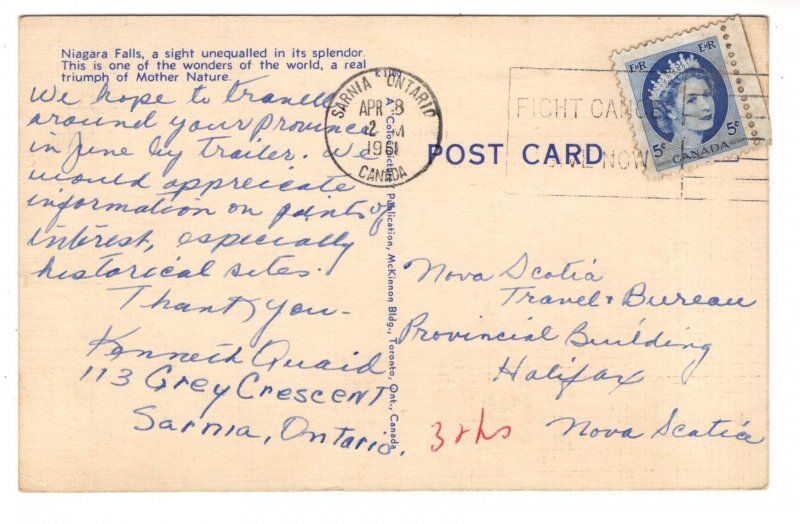 Niagara Falls, a sight unequalled in its splendor.
This is one of the wonders of the world, a real
triumph of Mother Nature.
We hope to travell
around your Province
in June by trailer. We
would appreciate
information on points of
interest, especially
historical sites.
Thank you-
Kenneth Quaid
113 Grey Crescent
Sarnia, Ontario.
SARNIA ONTARIO
APR 8
2 M
1961
CANADA
Publication, McKinnon Bldg., Toronto, Ont., Canada
POST CARD
FIGHT CANCE
VE NOW
E II R
E II R
5¢
5¢
CANADA
Nova Scotia
Travel + Bureau
Provincial Building
Halifax
Nova Scotia